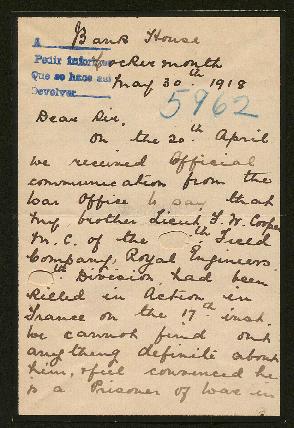 Bank House
Cockermouth
May 30th 1918
A
Pedir informes
Que se hace aus
Devolver
5962
Dear Sir,
On the 20th April
we received Official
communication from the
War Office to say that
my brother Lieut. F. W. Cooper
M.C. of the th Field
Company, Royal Engineers
th Division had been
Killed in Action in
France on the 17th inst.
We cannot find out
anything definite about
him, & feel convinced he
is a Prisoner of War in